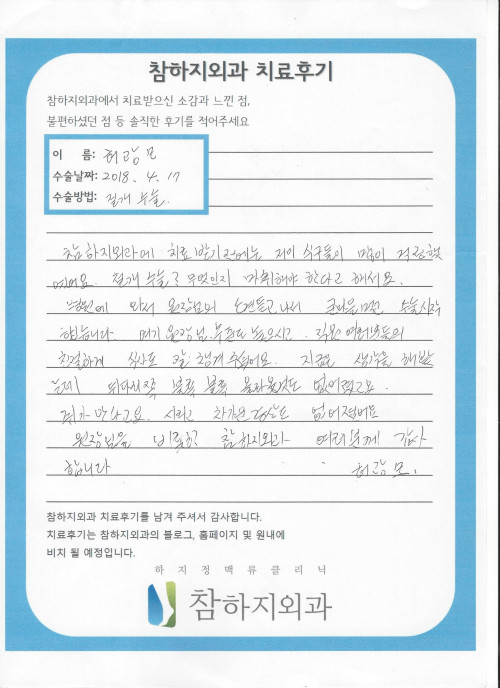 참하지외과 치료후기
참하지외과에서 치료받으신 소감과 느낀 점,
불편하셨던 점 등 솔직한 후기를 적어주세요
이 름: 허광모
수술날짜: 2018. 4. 17
수술방법: 절개 수술
참하지외과에 치료 받기 전에는 저의 식구들이 많이 걱정했
었어요. 절개 수술? 무엇인지 마취해야 한다고 해서요.
병원에 와서 원장님의 설명듣고나서 수술시작
했습니다. 여기 원장님, 직원 여러분들의
친절하게 식사도 잘 챙겨 주셨어요. 지금은 생각을 해봤
는데 뒤다리쪽 볼록 볼록 올라왔것도 없어졌고요.
쥐가 안나고요. 시리고 차가운 증상도 없어졌어요
원장님을 비롯한 참하지외과 여러분께 감사
합니다 허광모.
참하지외과 치료후기를 남겨 주셔서 감사합니다.
치료후기는 참하지외과의 블로그, 홈페이지 및 원내에
비치 될 예정입니다.
하지정맥류클리닉
참하지외과